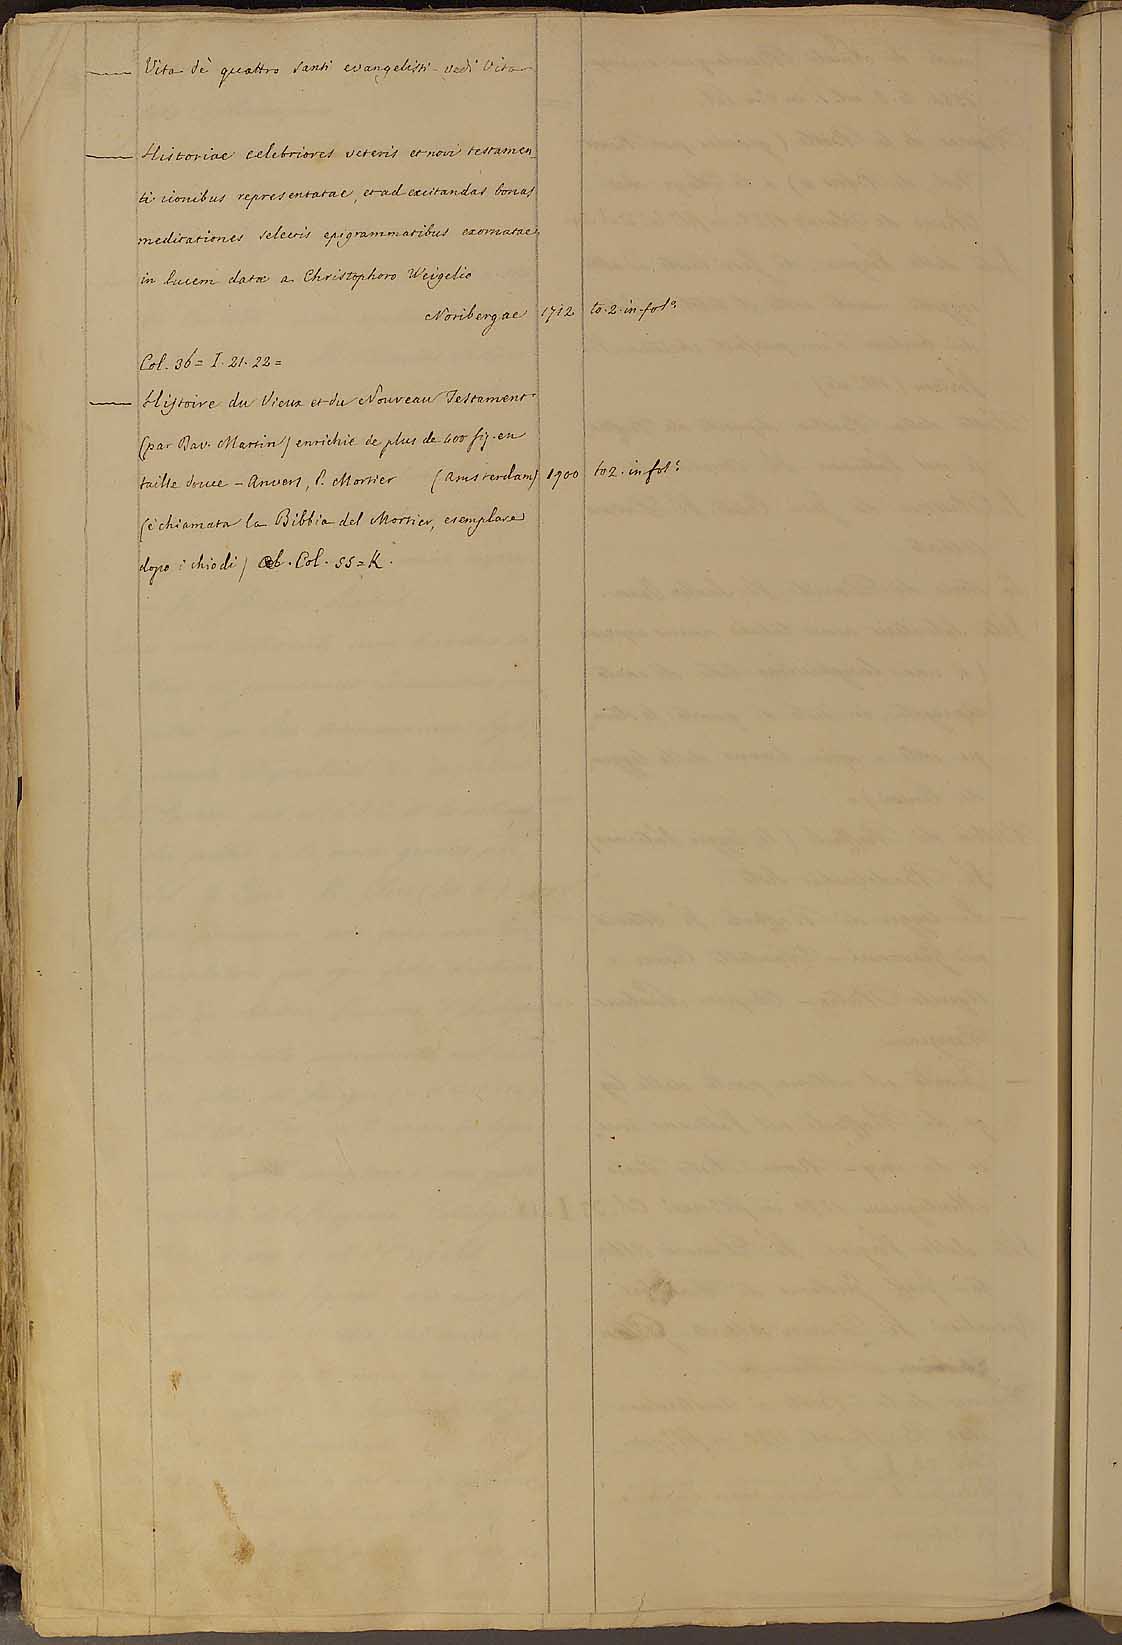 —— Vita de' quattro santi evangelisti - vedi Vita
—— Historiae celebriores veteris et novi testamen
ti iconibus representatae, et ad excitandas bonas
meditationes selectis epigrammatibus exornatae,
in lucem datae a Christophoro Weigelio
Noribergae 1712 to. 2. in fol°
Col. 36 = I. 21. 22 =
—— Histoire du Vieux et du Nouveau Testament
(par Dav. Martin) enrichie de plus de 400 fig. en
taille douce - Anvers, P. Mortier (Amsterdam) 1700 to 2. in fol°
(è chiamata la Bibbia del Mortier, esemplare
dopo i chiodi) Col. 55 = K.